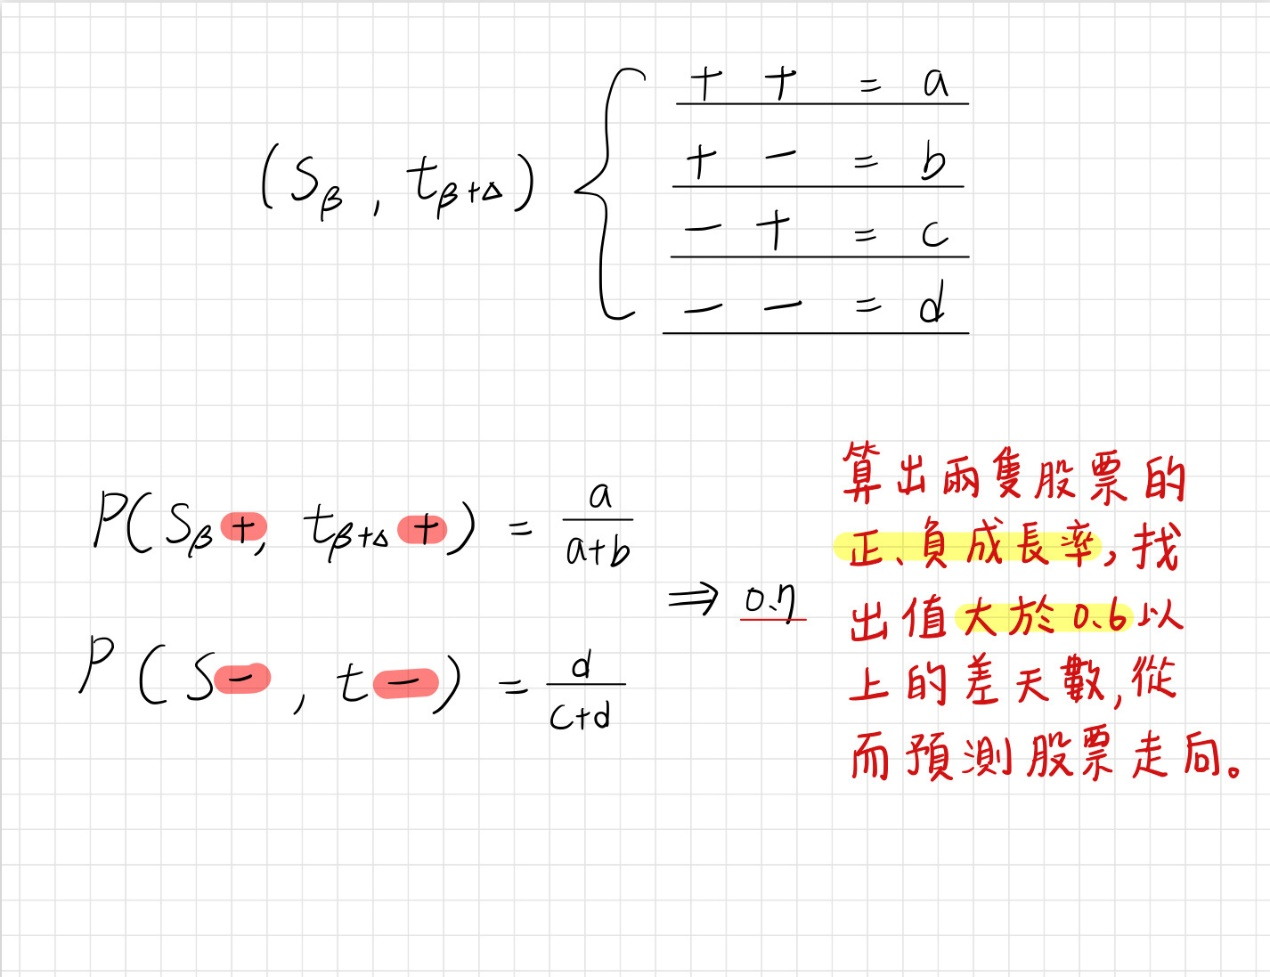 + + = a
+ - = b
(Sβ, tβ+Δ)
- + = c
- - = d
P(Sβ+, tβ+Δ+) = a/(a+b)
P(S-, t-) = d/(c+d)
⇒ 0.7
算出兩隻股票的
正、負成長率,找
出值大於0.6以
上的差天數,從
而預測股票走向。